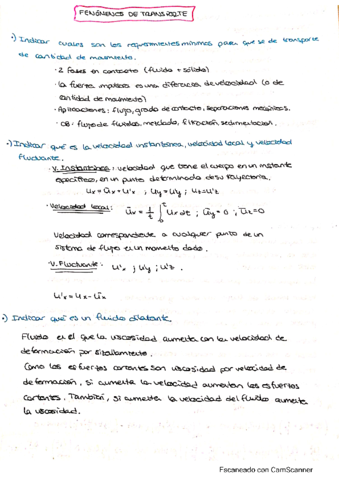 FENÓMENOS DE TRANSPORTE
·) Indicar cuales son los requerimientos mínimos para que se de transporte
de cantidad de movimiento.
· 2 fases en contacto (fluido + sólido)
· la fuerza impulsora es una diferencia de velocidad (o de
cantidad de movimiento)
· Aplicaciones: flujo, grado de contacto, separaciones mecánicas.
· OB: flujo de fluidos, mezclado, filtración, sedimentación.
·) Indicar qué es la velocidad instantánea, velocidad local y velocidad
fluctuante.
· V. Instantánea: velocidad que tiene el cuerpo en un instante
específico, en un punto determinado de su trayectoria.
Ux = Ūx + U'x ; Uy = U'y ; Uz = U'z
· Velocidad local: Ūx = 1/t ∫ Ux dt ; Ūy = 0 ; Ūz = 0
Velocidad correspondiente a cualquier punto de un
sistema de flujo en un momento dado.
· V. Fluctuante: U'x ; U'y ; U'z .
U'x = Ux - Ūx
·) Indicar qué es un fluido dilatante.
Fluido en el que la viscosidad aumenta con la velocidad de
deformación por cizallamiento.
Como los esfuerzos cortantes son viscosidad por velocidad de
deformación, si aumenta la velocidad aumentan los esfuerzos
cortantes. También, si aumenta la velocidad del fluido aumenta
la viscosidad.
Escaneado con CamScanner